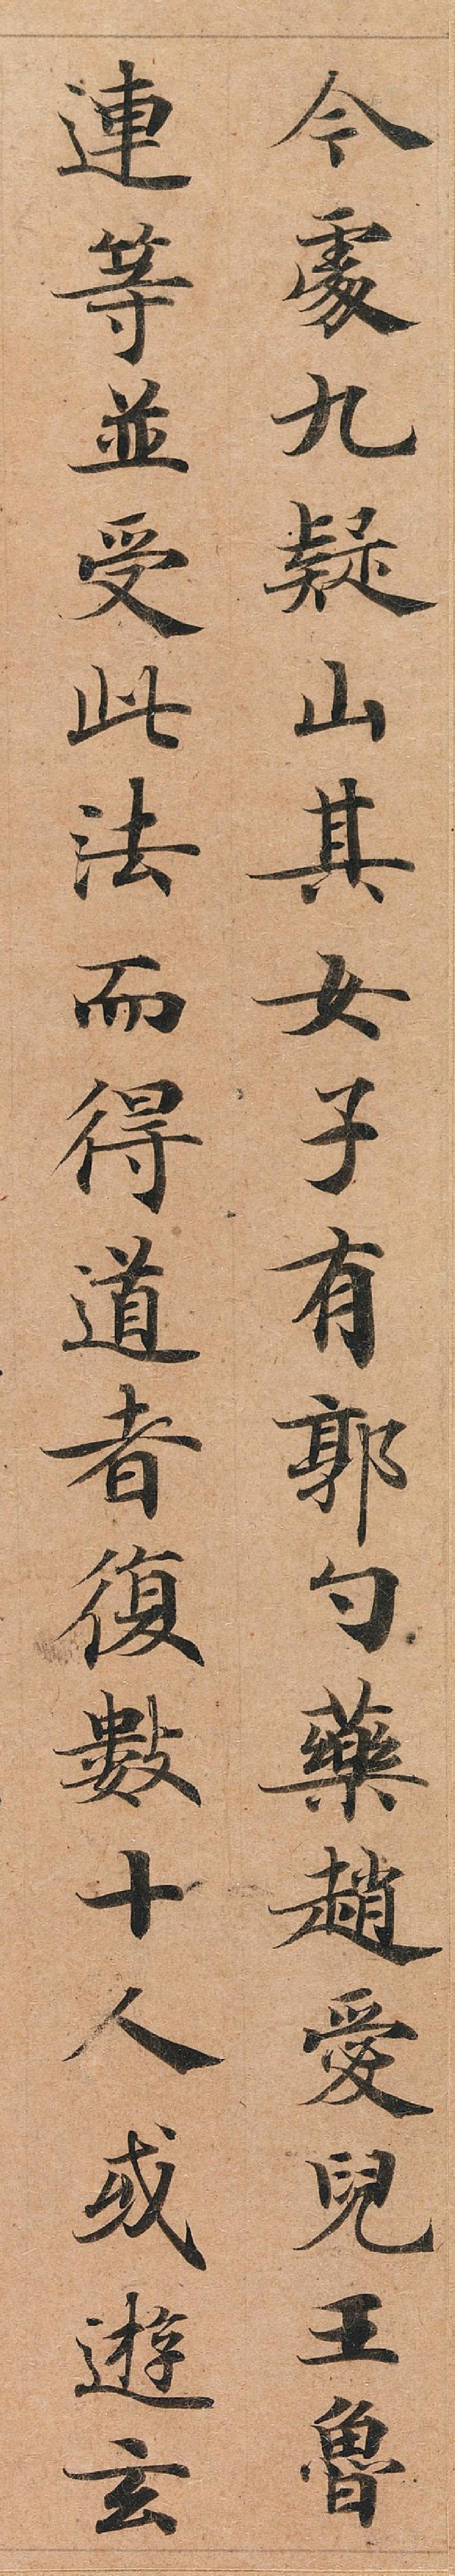 今處九疑山其女子有郭勺藥趙愛兒王魯
連等並受此法而得道者復數十人或遊玄